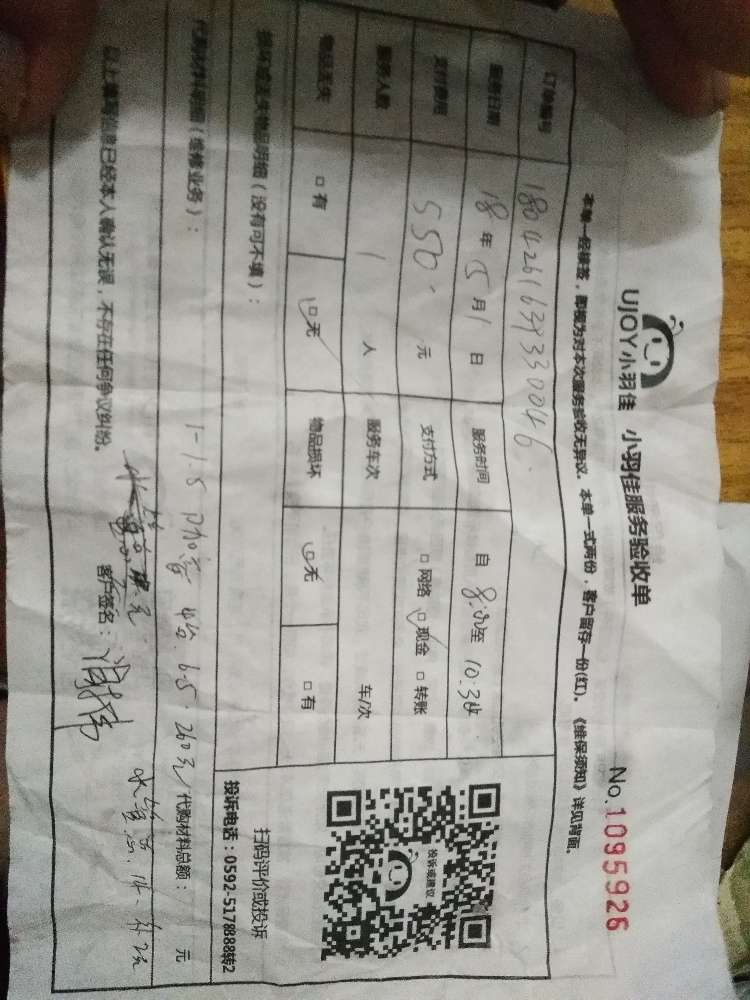 UJOY小羽佳 小羽佳服务验收单
No.1095926
本单一经签签，即视为对本次服务验收无异议。本单一式两份，客户留存一份(红)。《维保须知》详见背面。
订单编号
服务日期 18年5月1日 服务时间 自8:30至10:30
支付费用 550.元 支付方式 □网络 □现金 □转账
服务人数 1人 服务车次 车/次
物品丢失 □有 □无 物品损坏 □无 □有
损坏或丢失物品明细（没有可不填）：
投诉或建议
扫码评价或投诉
投诉电话：0592-5178888转2
代购材料明细（维修业务）：
1-1.5P加管 4台. 65. 260元
代购材料总额： 元
以上填写信息已经本人确认无误，不存在任何争议纠纷。
客户签名：